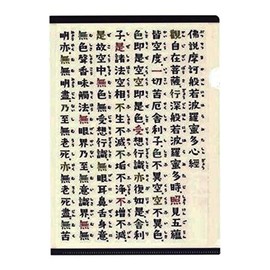 佛説摩訶般若波羅蜜多心經
觀自在菩薩行深般若波羅蜜多時照見五蘊
皆空度一切苦厄舍利子色不異空空不異色
色即是空空即是色受想行識亦復如是舍利
子是諸法空相不生不滅不垢不淨不增不減
是故空中無色無受想行識無眼耳鼻舌身意
無色聲香味觸法無眼界乃至無意識界無無
明亦無無明盡乃至無老死亦無老死盡無苦